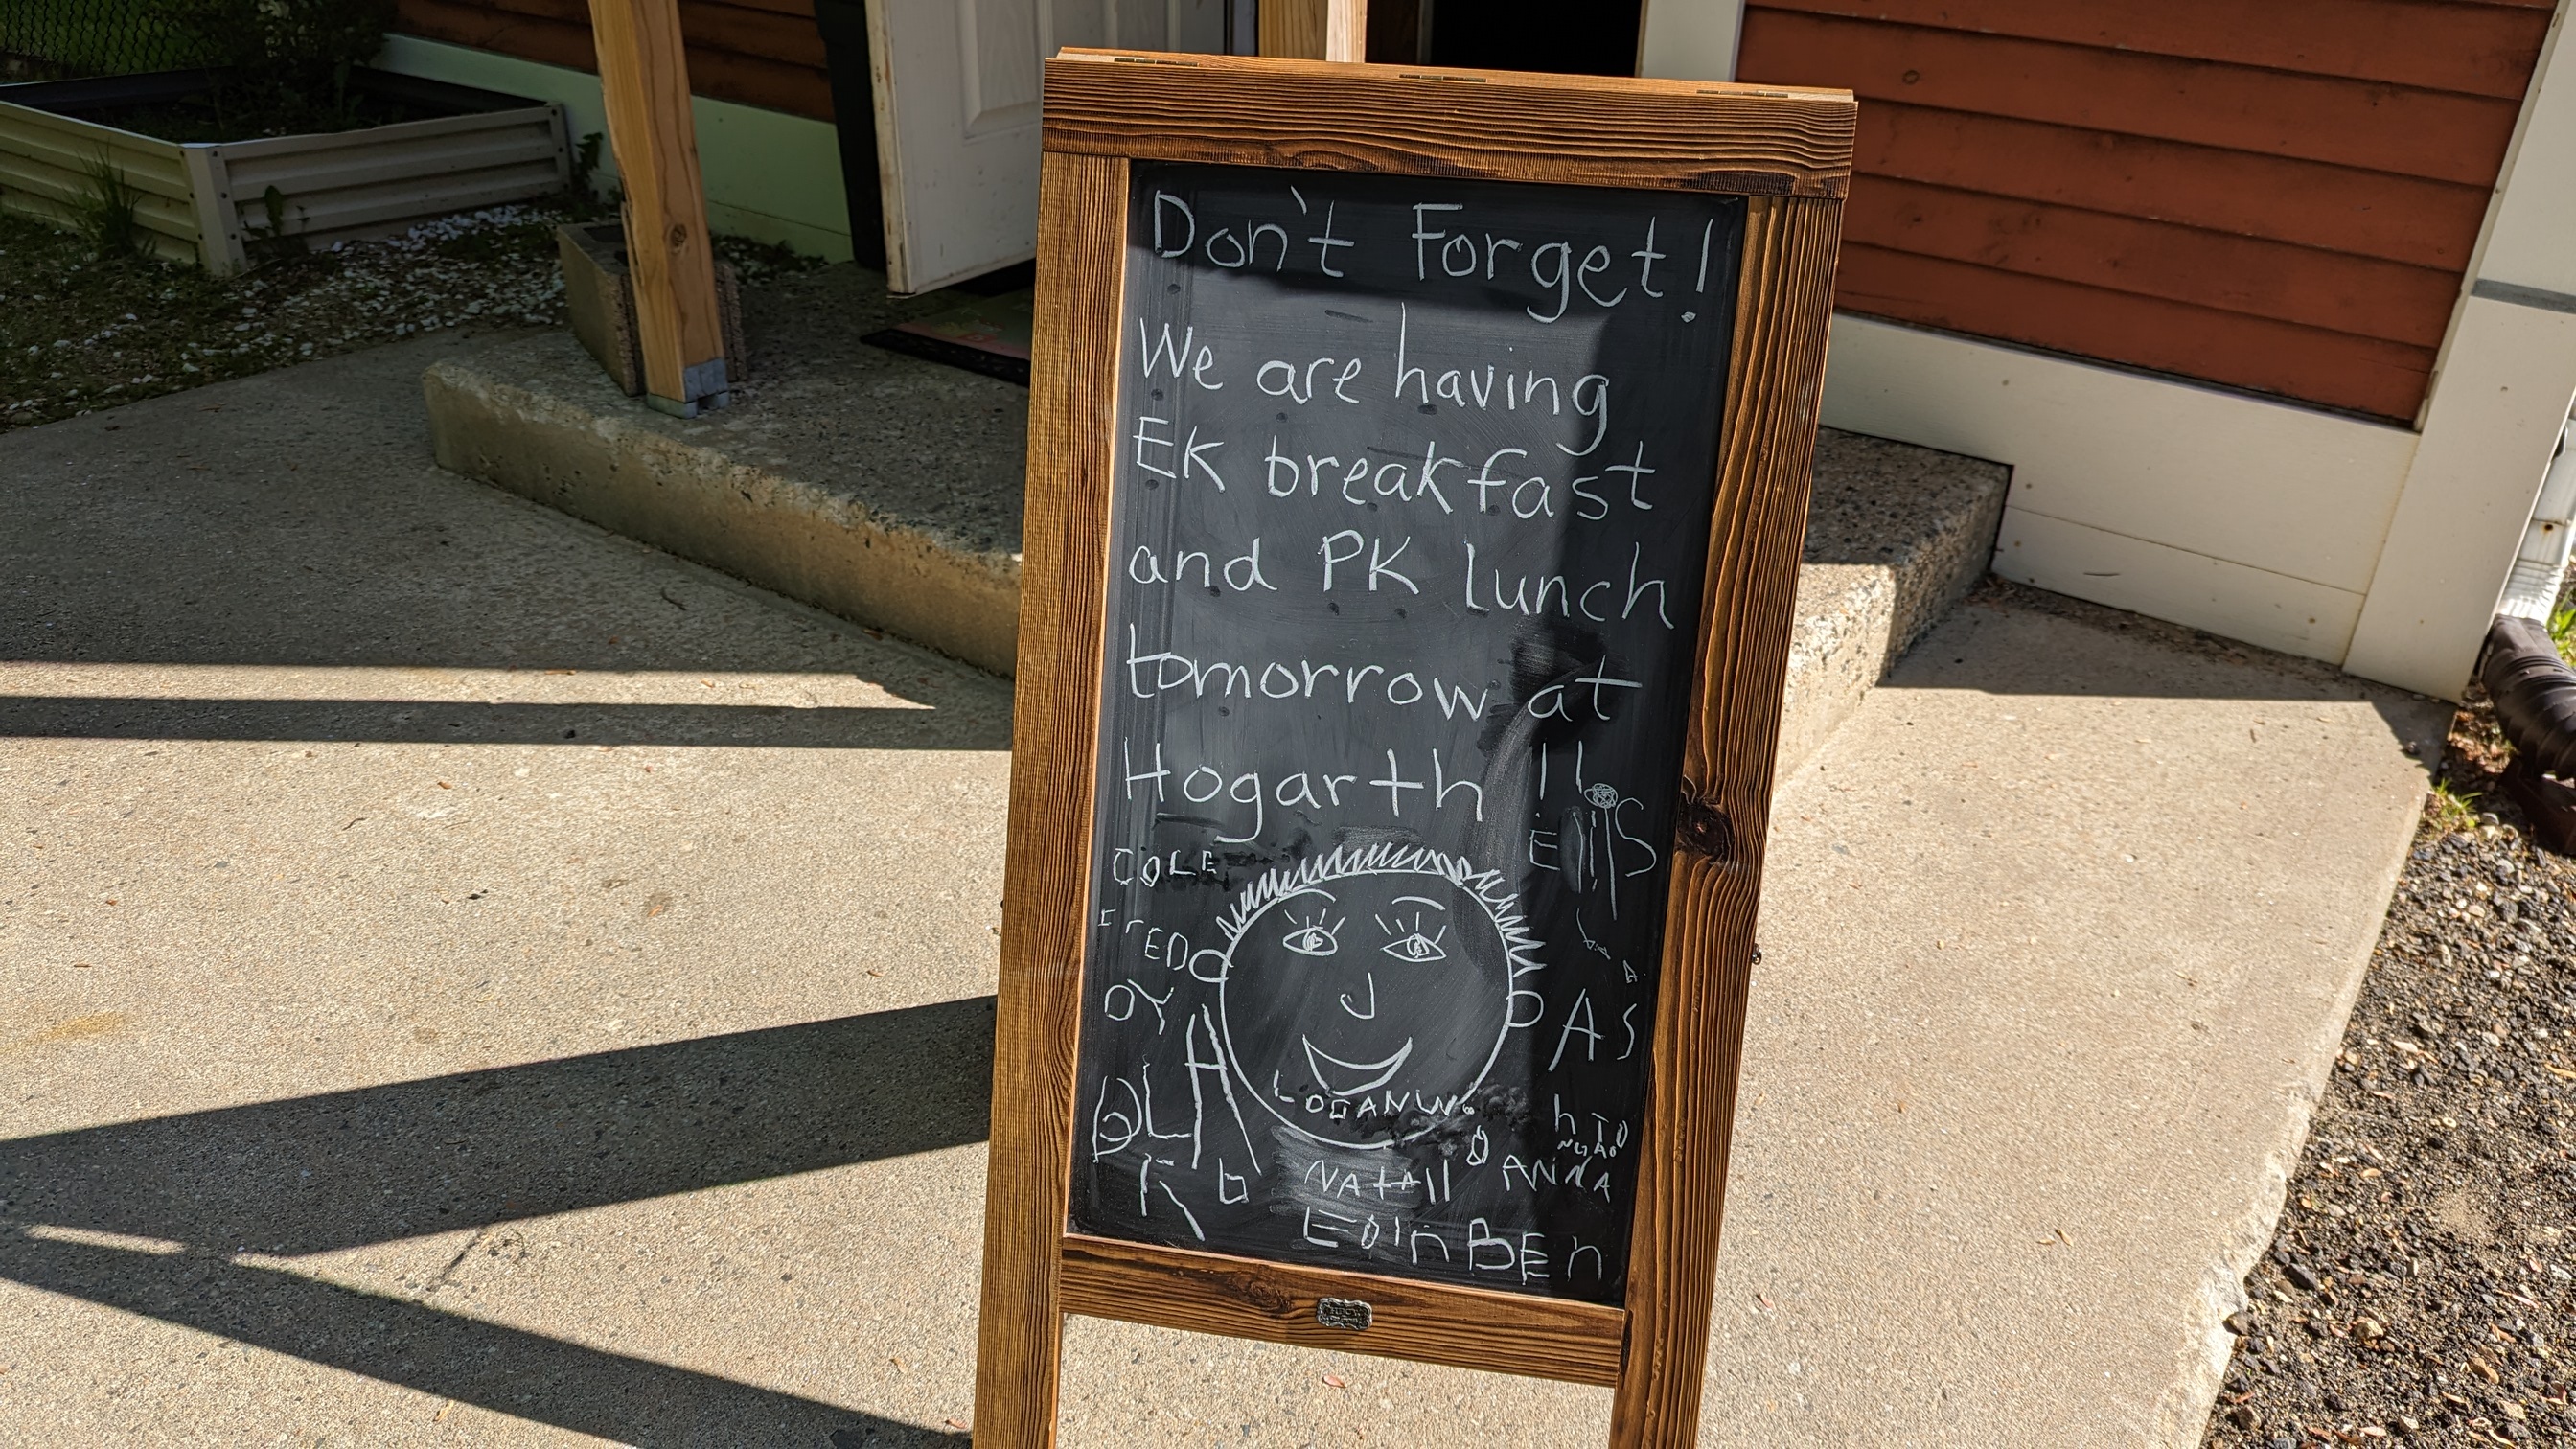 Don't Forget!
We are having
EK breakfast
and PK Lunch
tomorrow at
Hogarth !!
COLE
FrED
LOGANW
NATAll
ANNA
EoinBEn